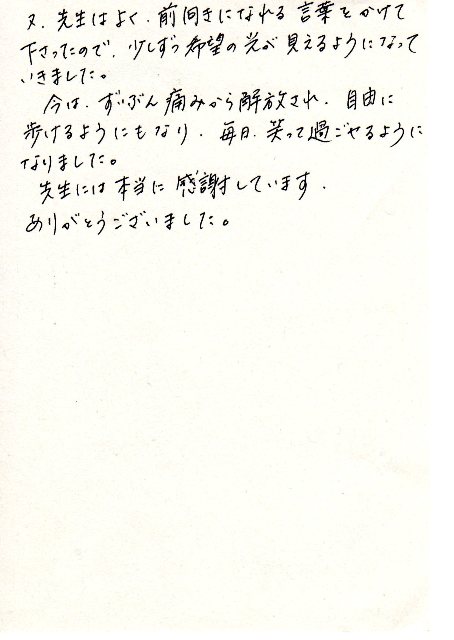 又、先生はよく、前向きになれる言葉をかけて
下さったので、少しずつ希望の光が見えるようになって
いきました。
今は、ずいぶん痛みから解放され、自由に
歩けるようにもなり、毎日、笑って過ごせるように
なりました。
先生には本当に感謝しています。
ありがとうございました。